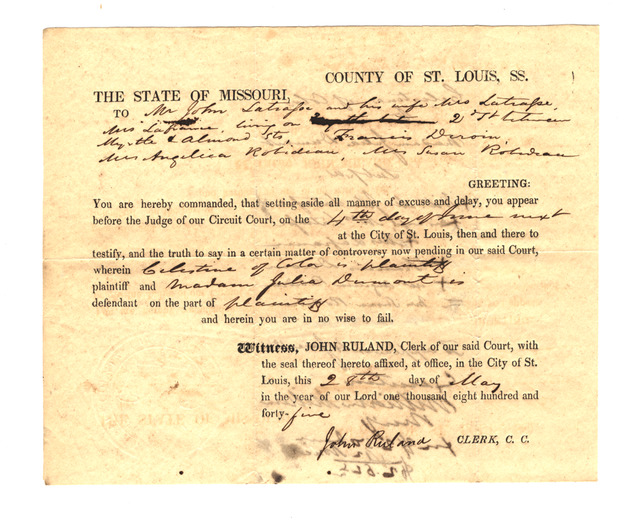 COUNTY OF ST. LOUIS, SS.
THE STATE OF MISSOURI,
TO Mr John Latrasse and his wife Mrs Latrasse,
Mrs Laframe, living on 2d St between
Myrtle & Almond Sts, Francis Deroin,
Mrs Angelica Robideau, Mrs Susan Robideau
GREETING:
You are hereby commanded, that setting aside all manner of excuse and delay, you appear
before the Judge of our Circuit Court, on the 4th day of June next
at the City of St. Louis, then and there to
testify, and the truth to say in a certain matter of controversy now pending in our said Court,
wherein Celestine of Color is plaintiff
plaintiff and Madam Julia Dumont is
defendant on the part of plaintiff
and herein you are in no wise to fail.
Witness, JOHN RULAND, Clerk of our said Court, with
the seal thereof hereto affixed, at office, in the City of St.
Louis, this 28th day of May
in the year of our Lord one thousand eight hundred and
forty-five
John Ruland CLERK, C. C.